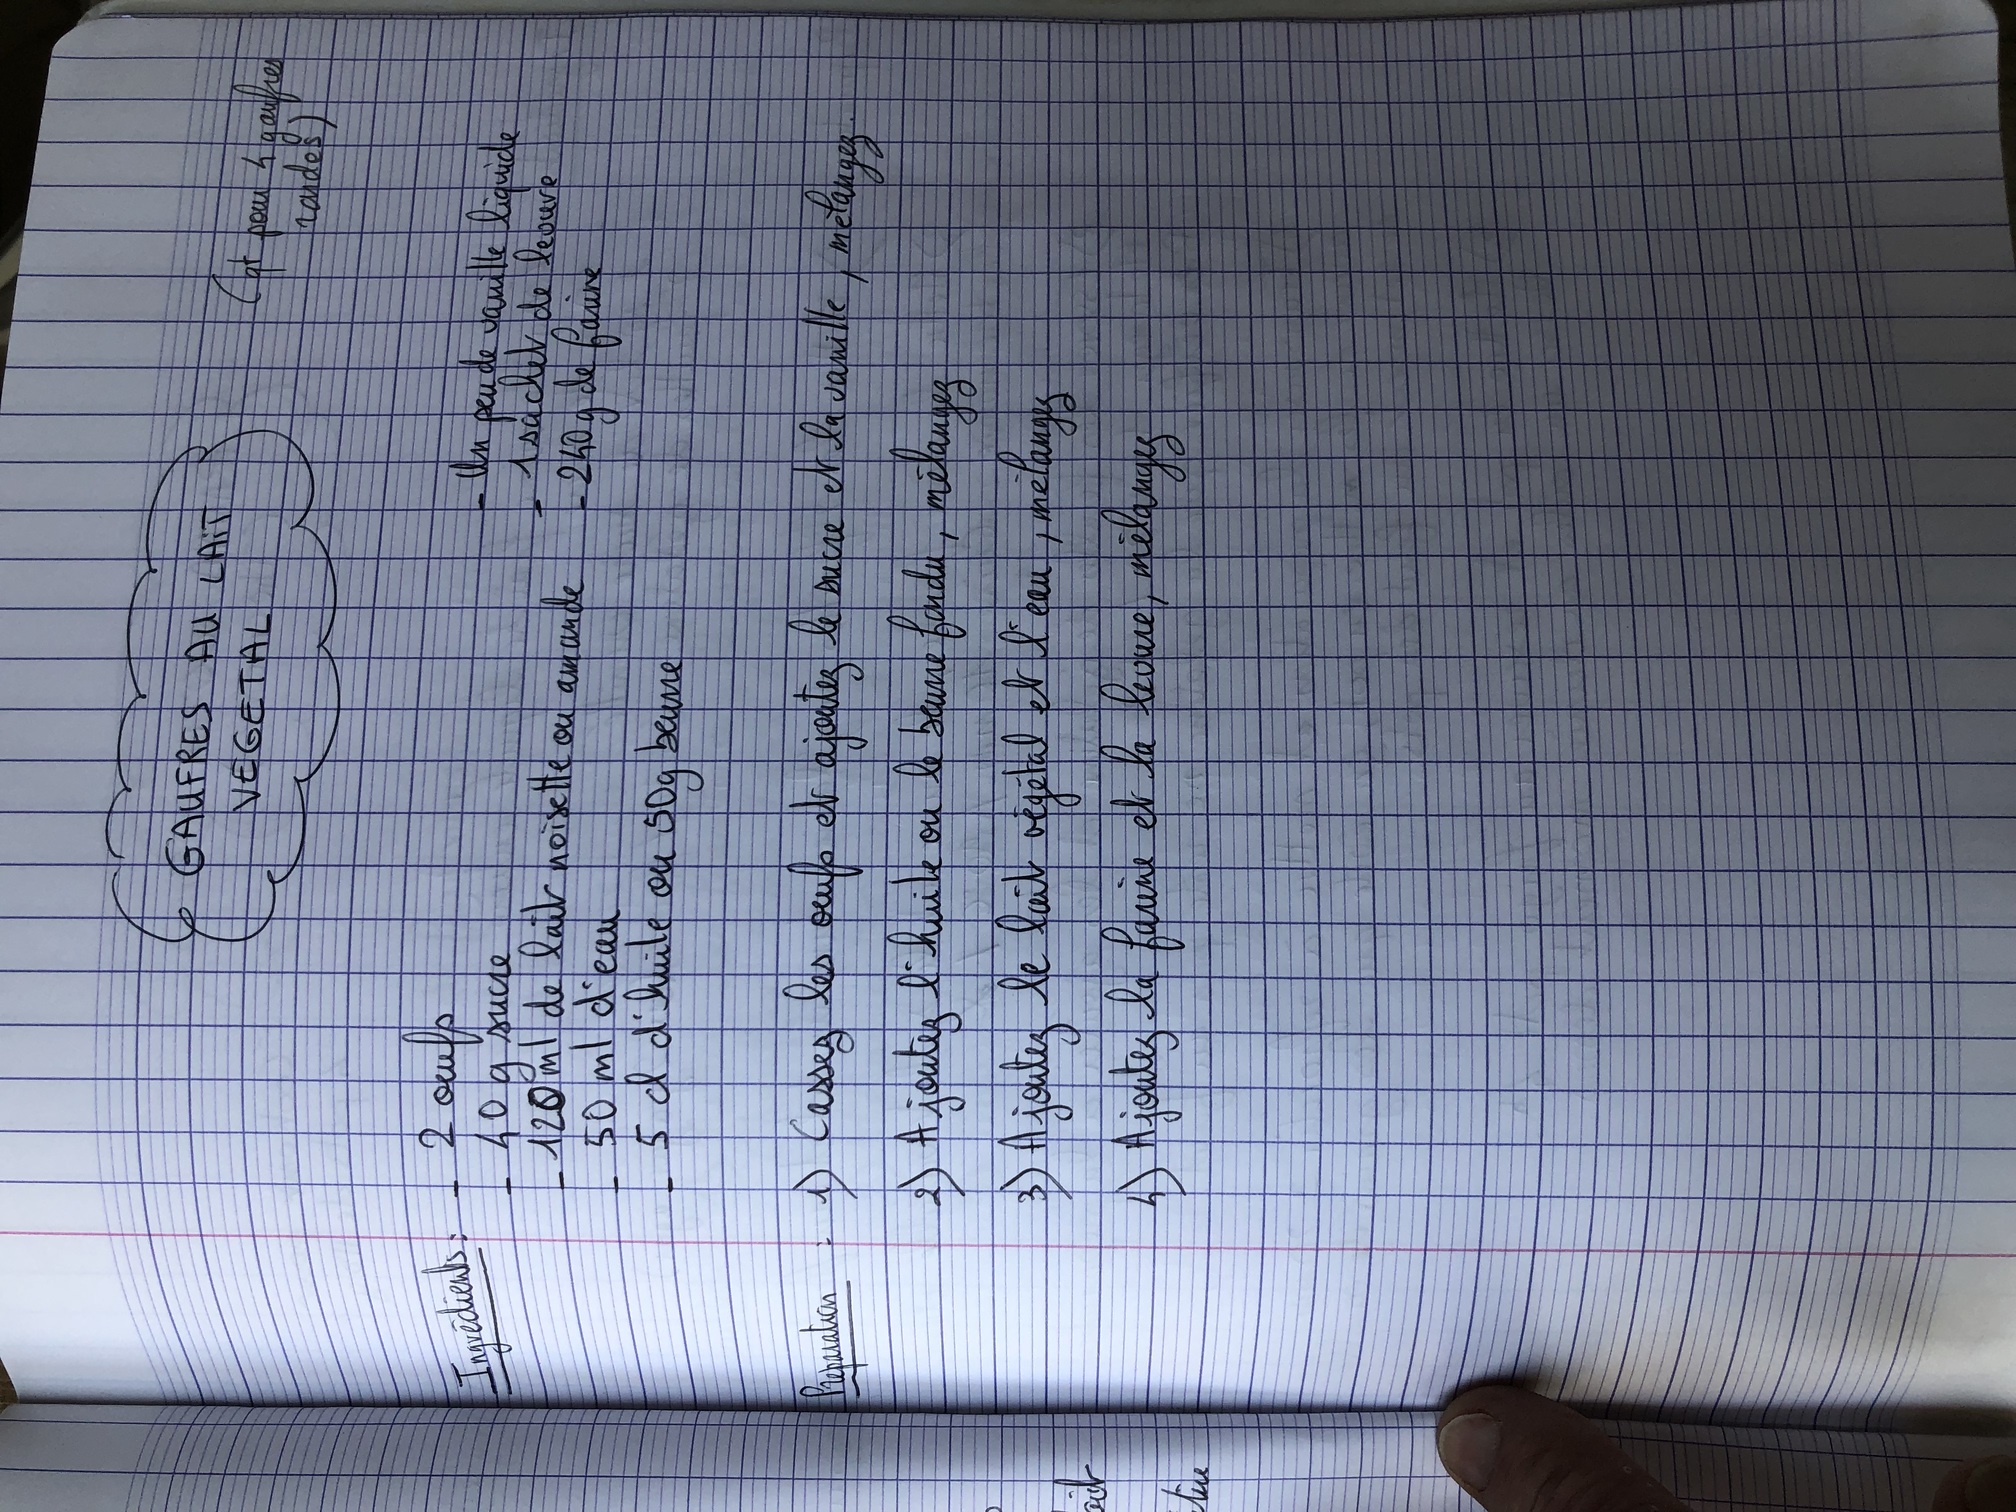 GAUFRES AU LAIT
VEGETAL
(qt pour 4 gaufres
rondes)
Ingrédients :
- 2 oeufs
- 40 g sucre
- 120 ml de lait noisette ou amande
- 50 ml d'eau
- 5 cl d'huile ou 50g beurre
- Un peu de vanille liquide
- 1 sachet de levure
- 240 g de farine
Préparation :
1) Cassez les oeufs et ajoutez le sucre et la vanille, mélangez.
2) Ajoutez l'huile ou le beurre fondu, mélangez
3) Ajoutez le lait végétal et l'eau, mélangez
4) Ajoutez la farine et la levure, mélangez